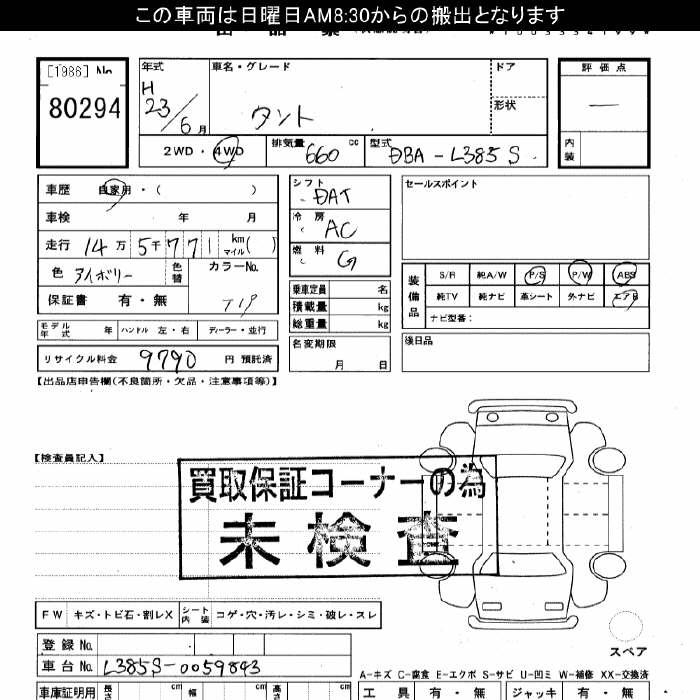 この車両は日曜日AM8:30からの搬出となります
[1986] No
80294
年式 車名・グレード ドア
H
23/6月 タント 形状
2WD・4WD 排気量 660 cc 型式 DBA-L385S
評価点
―
内装
車歴 自家用・( )
車検 年 月
走行 14万5千771 km マイル( )
色 アイボリー 色替 カラーNo.
保証書 有・無 T19
モデル年式 年 ハンドル 左・右 ディーラー・並行
リサイクル料金 9790 円 預託済
シフト DAT
冷房 AC
燃料 G
乗車定員 名
積載量 kg
総重量 kg
名変期限
月 日
セールスポイント
装備品
S/R 純A/W P/S P/W ABS
純TV 純ナビ 革シート 外ナビ エアB
ナビ型番:
後日品
【出品店申告欄(不良箇所・欠品・注意事項等)】
【検査員記入】
買取保証コーナーの為
未検査
FW キズ・トビ石・割レX シート内装 コゲ・穴・汚レ・シミ・破レ・スレ
スペア
登録No.
車台No. L385S-0059843
A-キズ C-腐食 E-エクボ S-サビ U-凹ミ W-補修 XX-交換済
車庫証明用 長さ cm 幅 cm 高さ cm
工具 有・無 ジャッキ 有・無